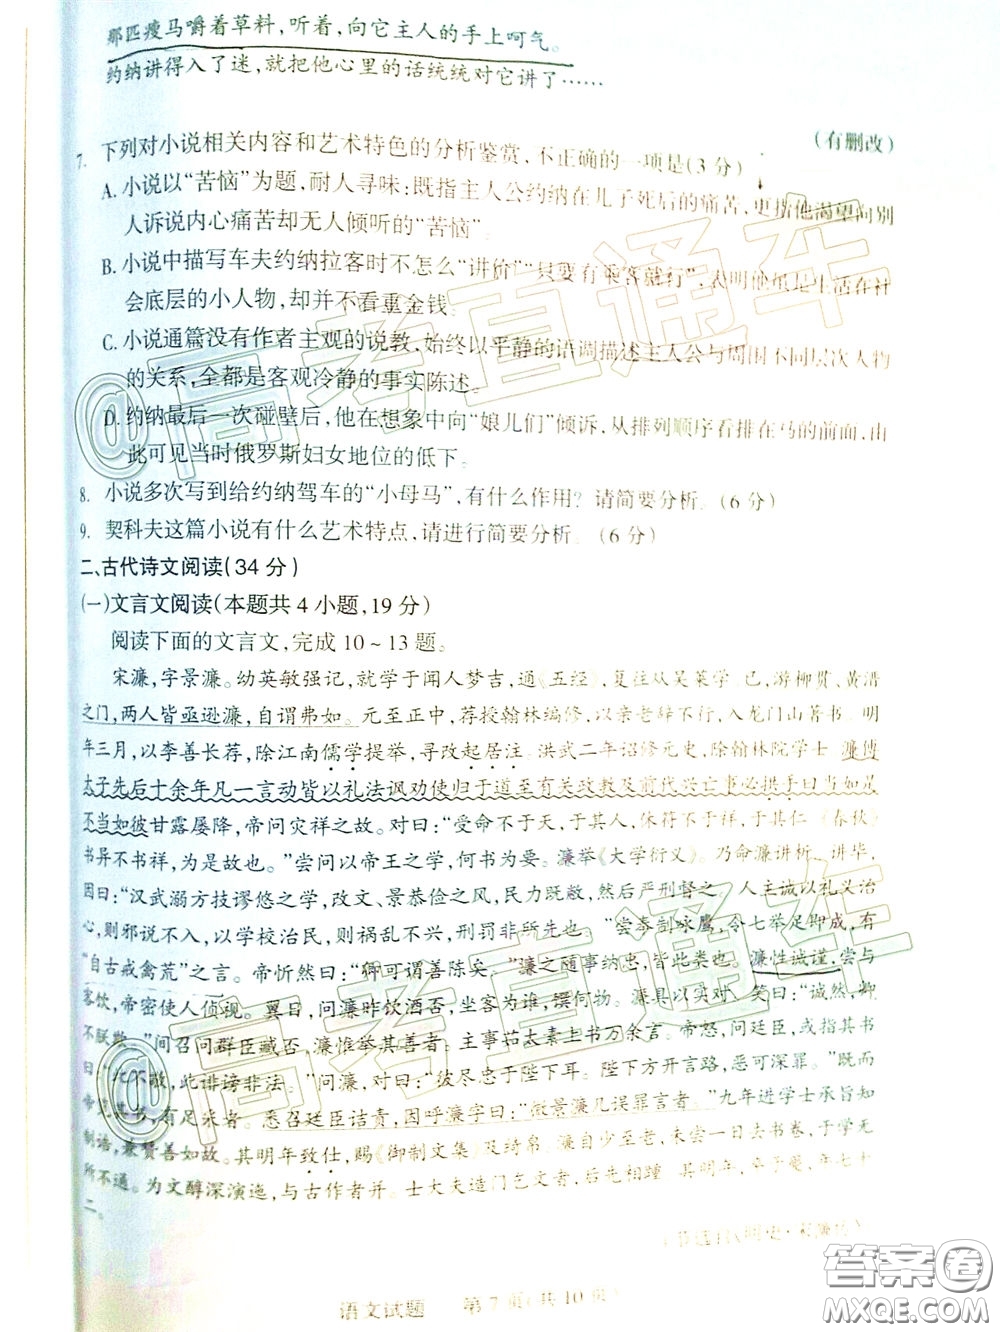 那匹瘦马嚼着草料,听着,向它主人的手上呵气。
约纳讲得入了迷,就把他心里的话统统对它讲了……
(有删改)
7. 下列对小说相关内容和艺术特色的分析鉴赏,不正确的一项是(3分)
A. 小说以“苦恼”为题,耐人寻味:既指主人公约纳在儿子死后的痛苦,更指他渴望向别
人诉说内心痛苦却无人倾听的“苦恼”
B. 小说中描写车夫约纳拉客时不怎么“讲价”“只要有乘客就行”,表明他虽是生活在社
会底层的小人物,却并不看重金钱。
C. 小说通篇没有作者主观的说教,始终以平静的语调描述主人公与周围不同层次人物
的关系,全都是客观冷静的事实陈述。
D. 约纳最后一次碰壁后,他在想象中向“娘儿们”倾诉,从排列顺序看排在马的前面,由
此可见当时俄罗斯妇女地位的低下。
8. 小说多次写到给约纳驾车的“小母马”,有什么作用?请简要分析。(6分)
9. 契科夫这篇小说有什么艺术特点,请进行简要分析。(6分)
二、古代诗文阅读(34分)
(一)文言文阅读(本题共4小题,19分)
阅读下面的文言文,完成10~13题。
宋濂,字景濂。幼英敏强记,就学于闻人梦吉,通《五经》,复往从吴莱学。已,游柳贯、黄溍
之门,两人皆亟逊濂,自谓弗如。元至正中,荐授翰林编修,以亲老辞不行,入龙门山著书。明
年三月,以李善长荐,除江南儒学提举,寻改起居注。洪武二年诏修元史,除翰林院学士 濂傅
太子先后十余年凡一言动皆以礼法讽劝使归于道至有关政教及前代兴亡事必拱手曰当如是
不当如彼甘露屡降,帝问灾祥之故。对曰:“受命不于天,于其人,休符不于祥,于其仁《春秋》
书异不书祥,为是故也。”尝问以帝王之学,何书为要。濂举《大学衍义》。乃命濂讲析。讲毕,
因曰:“汉武溺方技谬悠之学,改文、景恭俭之风,民力既敝,然后严刑督之。人主诚以礼义治
心,则邪说不入,以学校治民,则祸乱不兴,刑罚非所先也。”尝奉制咏鹰,令七举足即成,有
“自古戒禽荒”之言。帝忻然曰:“卿可谓善陈矣。”濂之随事纳忠,皆此类也。濂性诚谨,尝与
客饮,帝密使人侦视。翼日,问濂昨饮酒否,坐客为谁,馔何物。濂具以实对,笑曰:“诚然,卿
不朕欺。”间召问群臣臧否,濂惟举其善者。主事茹太素上书万余言。帝怒,问廷臣,或指其书
曰:“此不敬,此诽谤非法。”问濂,对曰:“彼尽忠于陛下耳。陛下方开言路,恶可深罪。”既而
帝览其书,有足采者。悉召廷臣诘责,因呼濂字曰:“微景濂几误罪言者。”九年进学士承旨知
制诰,兼赞善如故。其明年致仕,赐《御制文集》及绮帛。濂自少至老,未尝一日去书卷,于学无
所不通。为文醇深演迤,与古作者并。士大夫造门乞文者,后先相踵 其明年,卒于夔,年七十
二。
(节选自《明史·宋濂传》)
语文试题 第7页(共10页)
@高考直通车
@高考直通车
答案圈
MXQE.COM